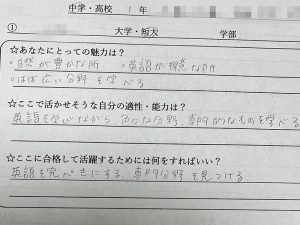 中学・高校 1 年
① 大学・短大 学部
☆あなたにとっての魅力は？
・自然が豊かな所 ・英語が得意な所
・はば広い分野を学べる
☆ここで活かせそうな自分の適性・能力は？
英語を学びながら、色々な分野、専門的なものを学べる
☆ここに合格して活躍するためには何をすればいい？
英語を完ぺきにする、専門分野を見つける